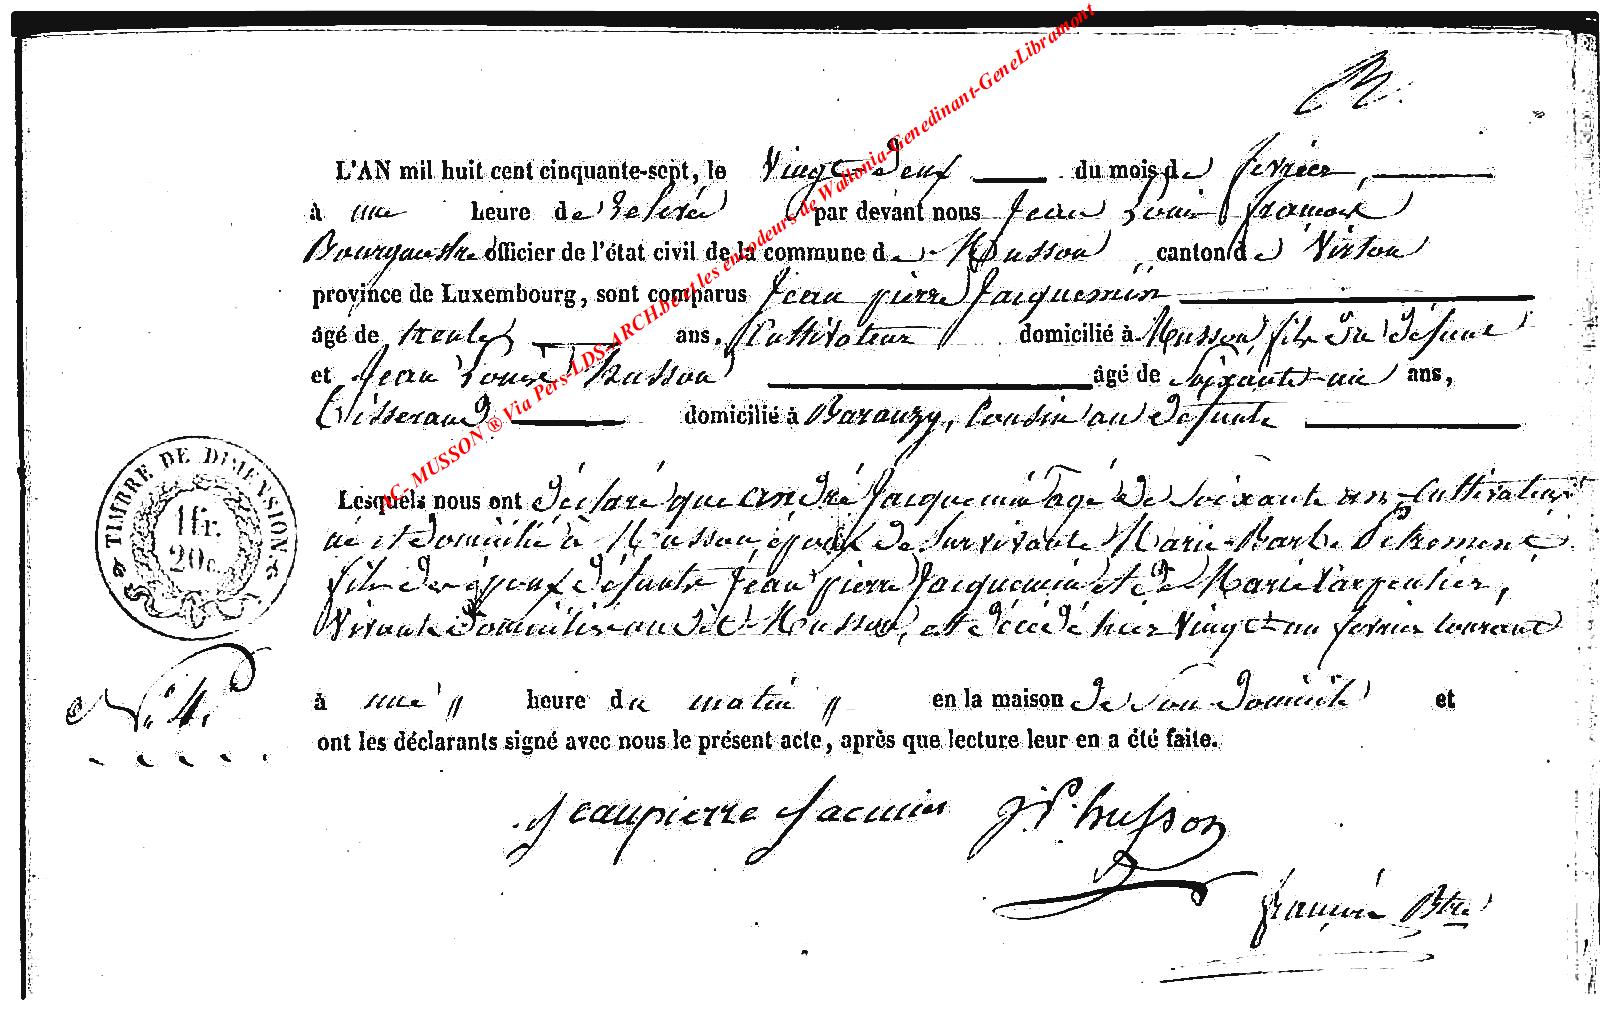 L'AN mil huit cent cinquante-sept, le Vingt-deux du mois de fevrier,
à une heure de relevée par devant nous Jean Louis françois
Bourgmestre officier de l'état civil de la commune de Musson canton de Virton
province de Luxembourg, sont comparus Jean pierre Jacquemin
âgé de trente ans, Cultivateur domicilié à Musson fils du défunt
et Jean Husson âgé de Soixante-un ans,
Tisserand domicilié à Baranzy, Cousin au défunt
Lesquels nous ont déclaré que andré Jacquemin agé de soixante ans Cultivateur
né et domicilié à Musson, époux de survivante Marie-Barbe
fils des époux défunts Jean pierre Jacquemin et de Marie Carpentier,
Vivants domiciliés au dit Musson, est décédé hier Vingt-un fevrier courant
à une " heure du matin " en la maison de son domicile et
ont les déclarants signé avec nous le présent acte, après que lecture leur en a été faite.
TIMBRE DE DIMENSION.
1 fr.
20 c.
N° 4.
Jeanpierre Jacmin J.P. husson
françois Btre
AC- MUSSON ® Via Pers-LDS-ARCH.be et les encodeurs de Wallonia-Genedinant-GeneLibramont